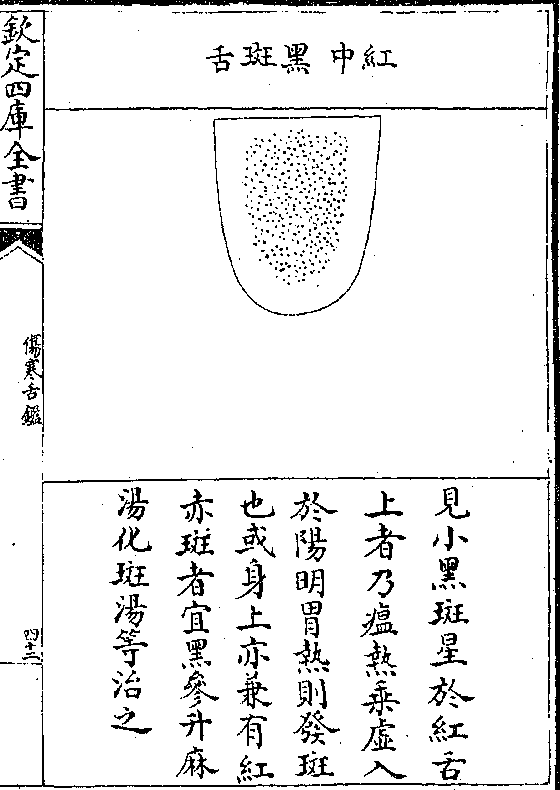 紅中黑斑舌
見小黑斑星於紅舌
上者乃瘟熱乘虛入
於陽明胃熱則發斑
也或身上亦兼有紅
赤斑者宜黑參升麻
湯化斑湯等治之
欽定四庫全書
傷寒舌鑑
四十三